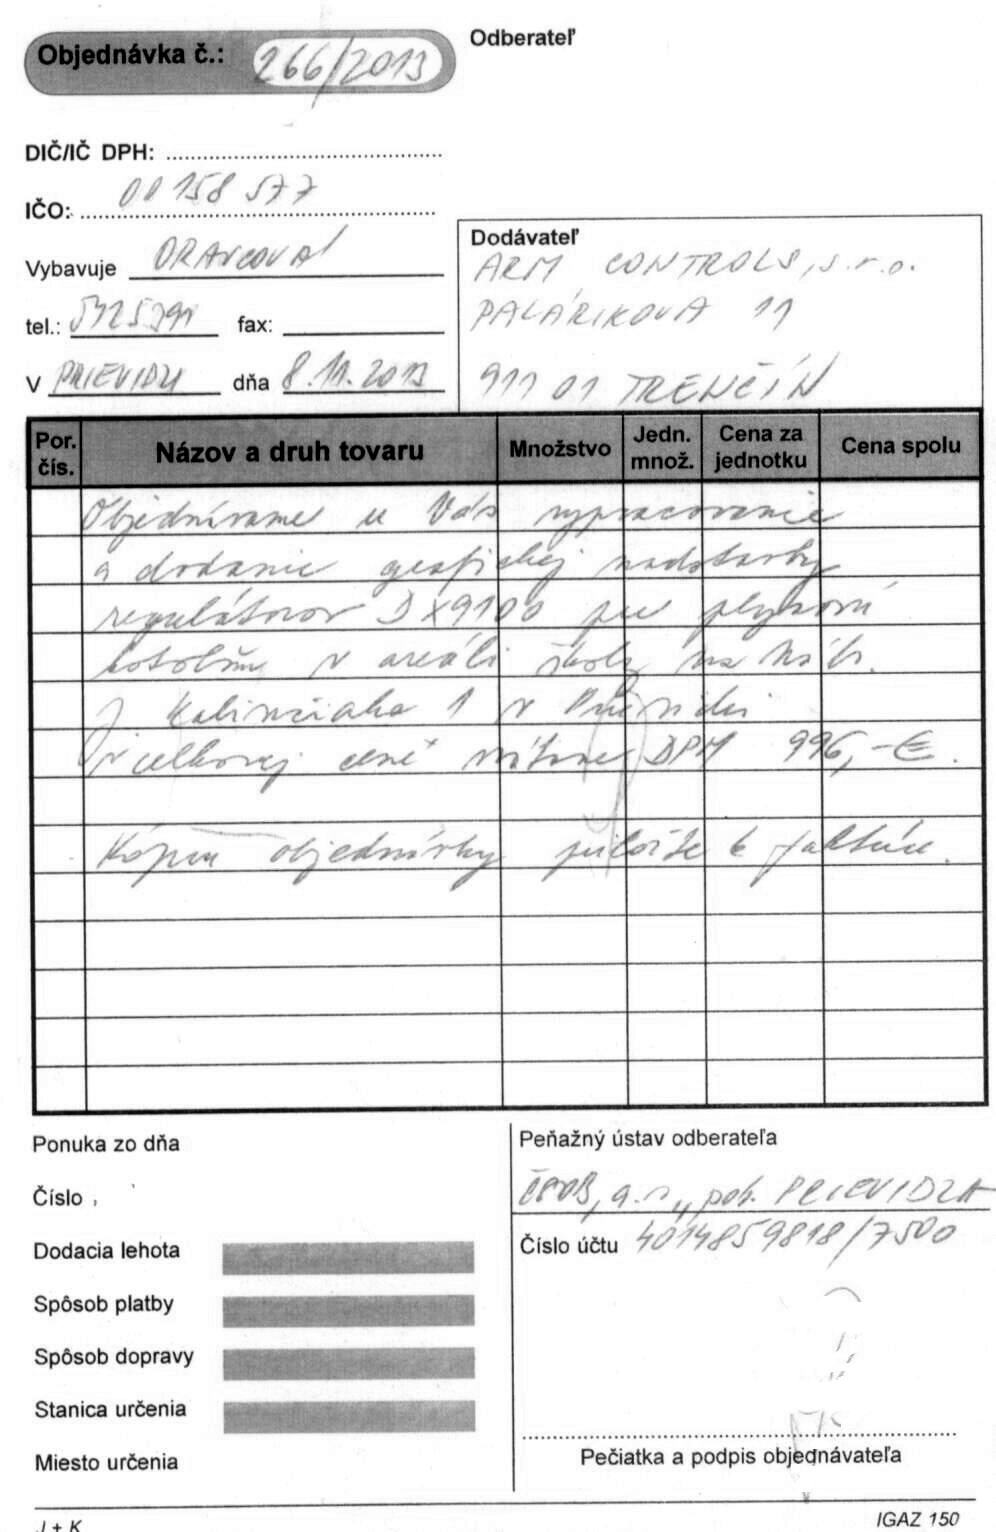 Objednávka č.: 266/2013
Odberateľ
DIČ/IČ DPH:
IČO: 00158577
Vybavuje ORAVCOVÁ
tel.: 5425791 fax:
V PRIEVIDZI dňa 8.11.2013
Dodávateľ
ARM CONTROLS, s.r.o.
PALÁRIKOVA 11
911 01 TRENČÍN
Por. čís. Názov a druh tovaru Množstvo Jedn. množ. Cena za jednotku Cena spolu
Objednávame u Vás vypracovanie
a dodanie grafickej nadstavby
regulátorov DX9100 pre plynovú
kotolňu v areáli školy na Náb.
J. Kalinčiaka 1 v Prievidzi
v celkovej cene vrátane DPH 996,-€.
Kópiu objednávky priložte k faktúre.
Ponuka zo dňa
Číslo
Dodacia lehota
Spôsob platby
Spôsob dopravy
Stanica určenia
Miesto určenia
Peňažný ústav odberateľa
ČSOB, a.s., pob. PRIEVIDZA
Číslo účtu 4014859818/7500
Pečiatka a podpis objednávateľa
J + K
IGAZ 150